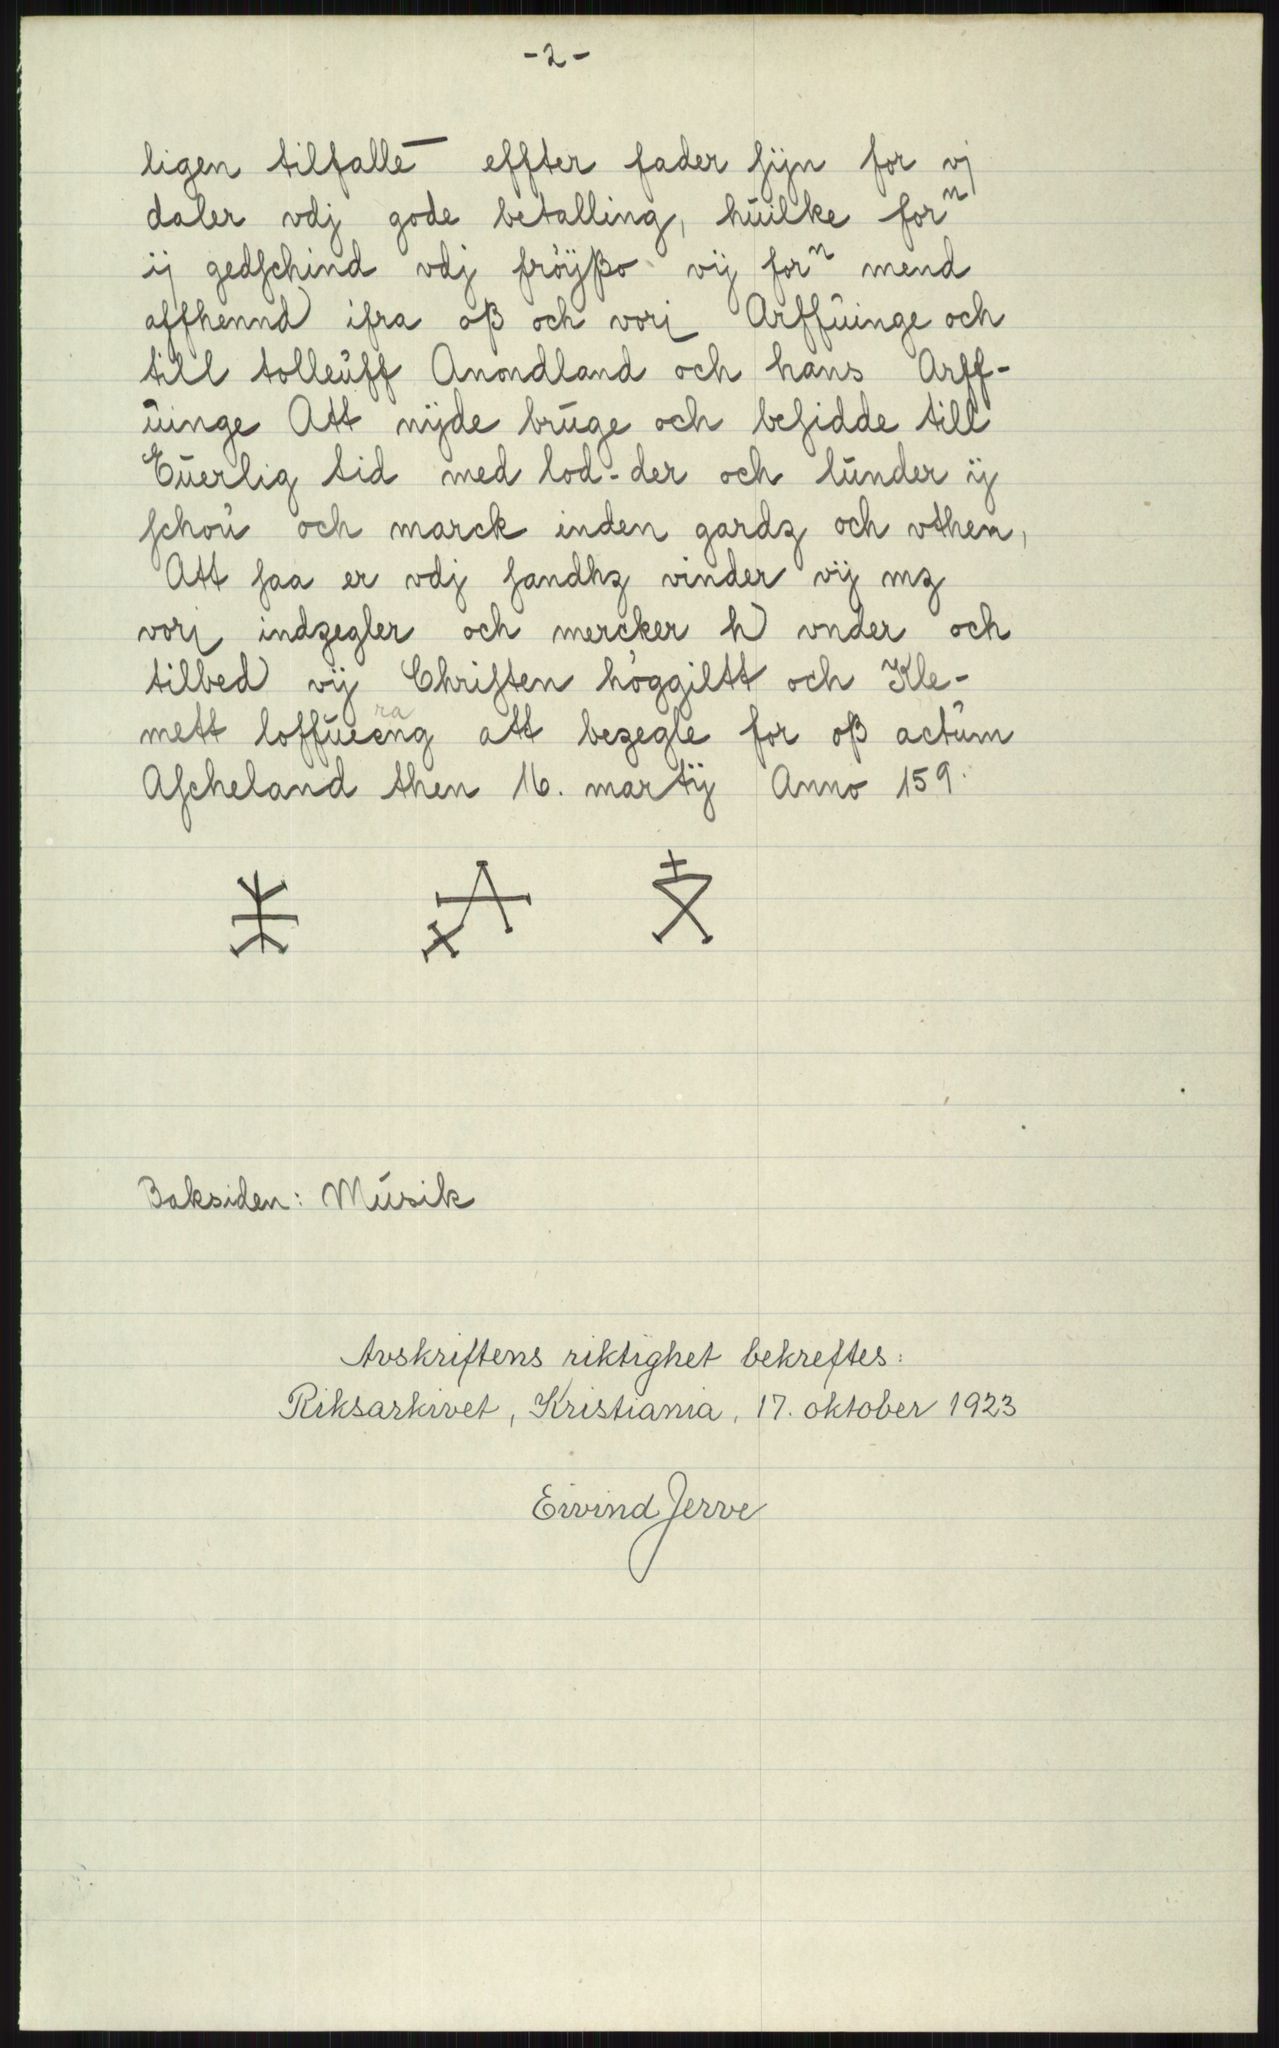 -2-
ligen tilfallē effter fader ſijn for vj
daler vdj gode betalling, hŭilke forⁿ
ij gedſchind vdj frøÿßo vij forⁿ mend
affhennd ifra oß och vorj Arffŭinge och
till tolleŭff Anondland och hans Arff-
ŭinge Att nÿde brŭge och beſidde till
Eŭerlig tid med lod-der och lŭnder ij
ſchoŭ och marck inden gardz och vthen,
Att ſaa er vdj ſandhz vinder vij mz
vorj indzegler och mercker h vnder och
tilbed vij Chriſten høggiltt och Kle-
mett loffŭeeng att bezegle for oß actŭm
ra
Aſcheland then 16. martÿ Anno 159·
Baksiden: Mŭsik
Avskriftens riktighet bekreftes:
Riksarkivet, Kristiania, 17. oktober 1923
Eivind Jerve